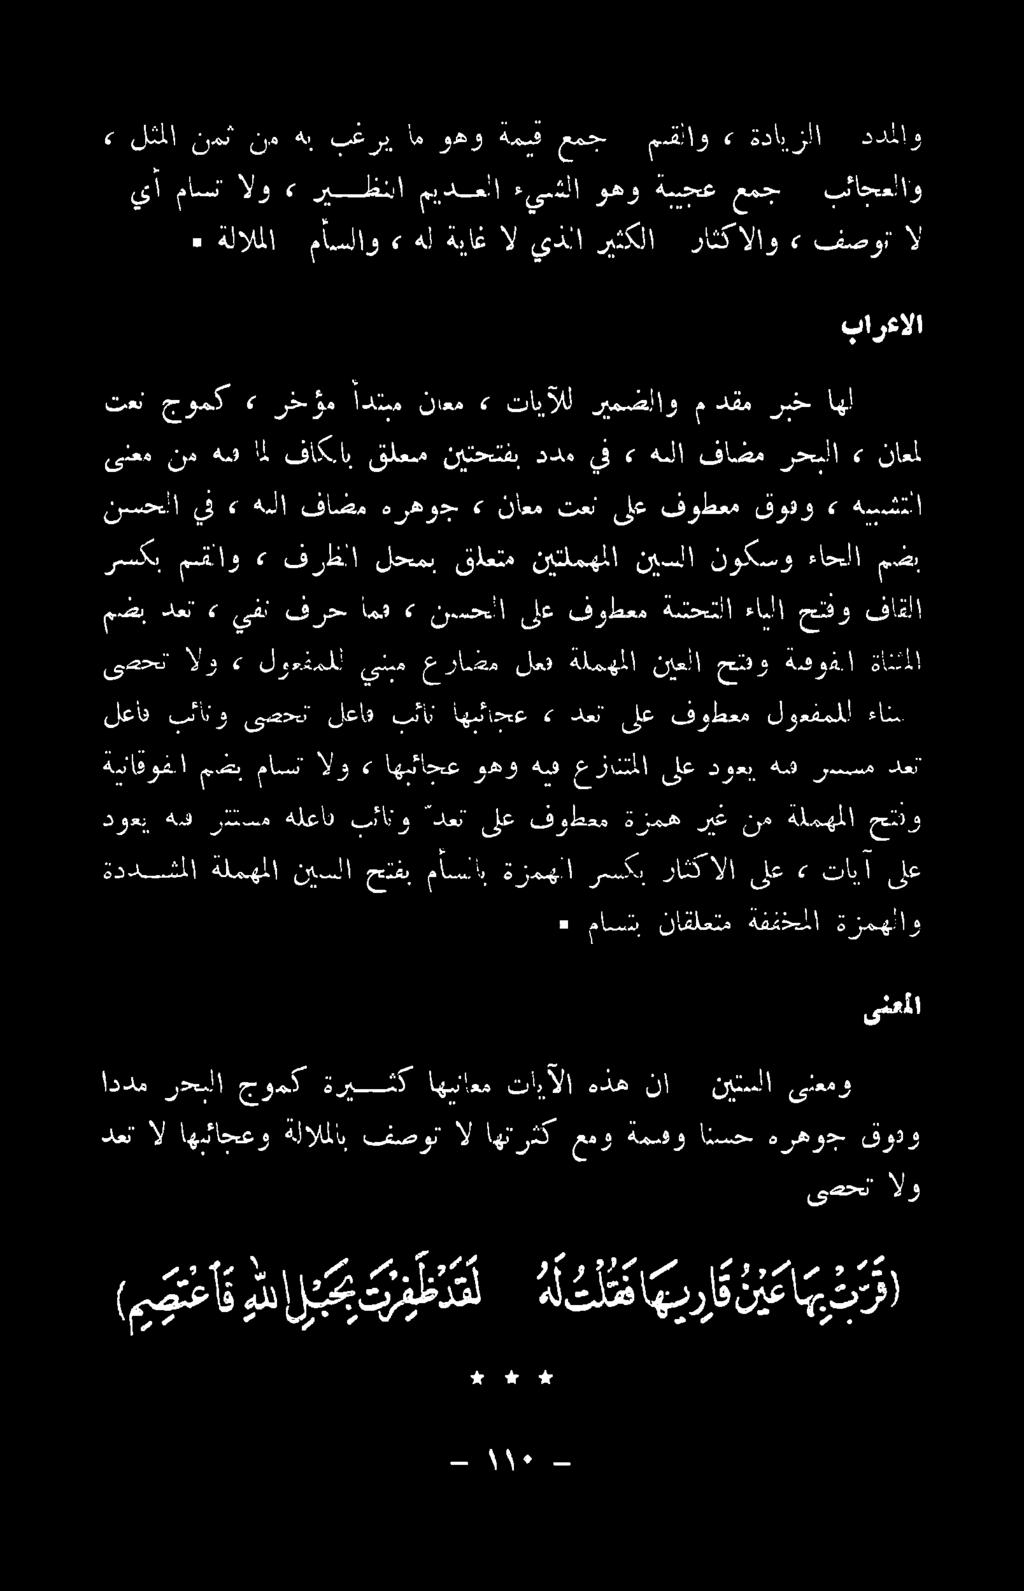 والمدد الزيادة ، والقيم جمع قيمة وهو ما يرغب به من ثمن المثل ،
والعجائب جمع عجيبة وهو الشيء العديم النظير ، ولا تسام أي
لا توصف ، والاكثار الكثير الذي لا غاية له ، والسأم الملالة ▪
الاعراب
لها خبر مقدم والضمير للآيات ، معان مبتدأ مؤخر ، كموج نعت
لمعان ، البحر مضاف اليه ، في مدد بفتحتين متعلق بالكاف لما فيه من معنى
التشبيه ، وفوق معطوف على نعت معان ، جوهره مضاف اليه ، في الحسن
بضم الحاء وسكون السين المهملتين متعلق بمحل الظرف ، والقيم بكسر
القاف وفتح الياء التحتية معطوف على الحسن ، فما حرف نفي ، تعد بضم
المثناة الفوقية وفتح العين المهملة فعل مضارع مبني للمفعول ، ولا تحصى
بناء للمفعول معطوف على تعد ، عجائبها نائب فاعل تحصى ونائب فاعل
تعد مستتر فيه يعود على المتنازع فيه وهو عجائبها ، ولا تسام بضم الفوقانية
وفتح المهملة من غير همزة معطوف على تعدّ ونائب فاعله مستتر فيه يعود
على آيات ، على الاكثار بكسر الهمزة بالسأم بفتح السين المهملة المشددة
والهمزة المخففة متعلقان بتسام ▪
المعنى
ومعنى البيتين ان هذه الآيات معانيها كثيرة كموج البحر مددا
وفوق جوهره حسنا وقيمة ومع كثرتها لا توصف بالملالة وعجائبها لا تعد
ولا تحصى
(قَرَّتْ بِهَا عَيْنُ قَارِيهَا فَقُلْتُ لَهُ لَقَدْ ظَفِرْتَ بِحَبْلِ اللهِ فَاعْتَصِمِ)
* * *
– ١١٠ –